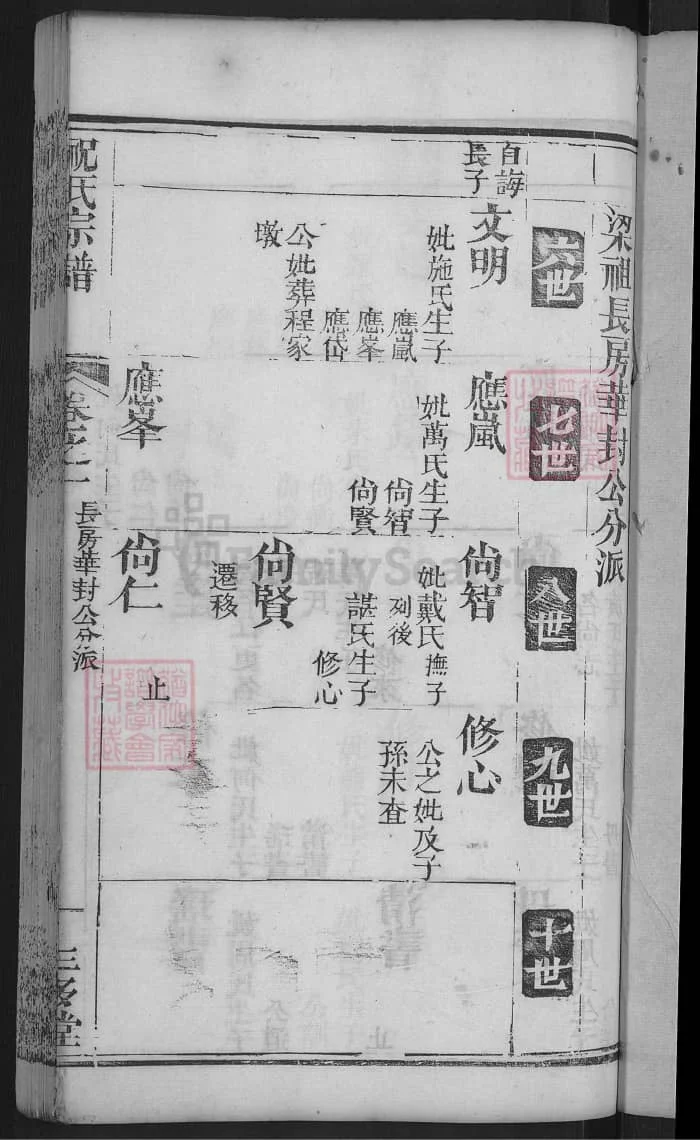 梁祖長房華封公分派
六世
七世
八世
九世
十世
自誨
長子
文明
妣施氏生子
應嵐
應峯
應岱
公妣葬程家
墩
應嵐
妣萬氏生子
尙智
尙賢
應峯
尙智
妣戴氏撫子
列後
尙賢
諶氏生子
修心
遷移
尙仁
止
修心
公之妣及子
孫未查
祝氏宗譜
卷之一
長房華封公分派
三多堂
FamilySearch